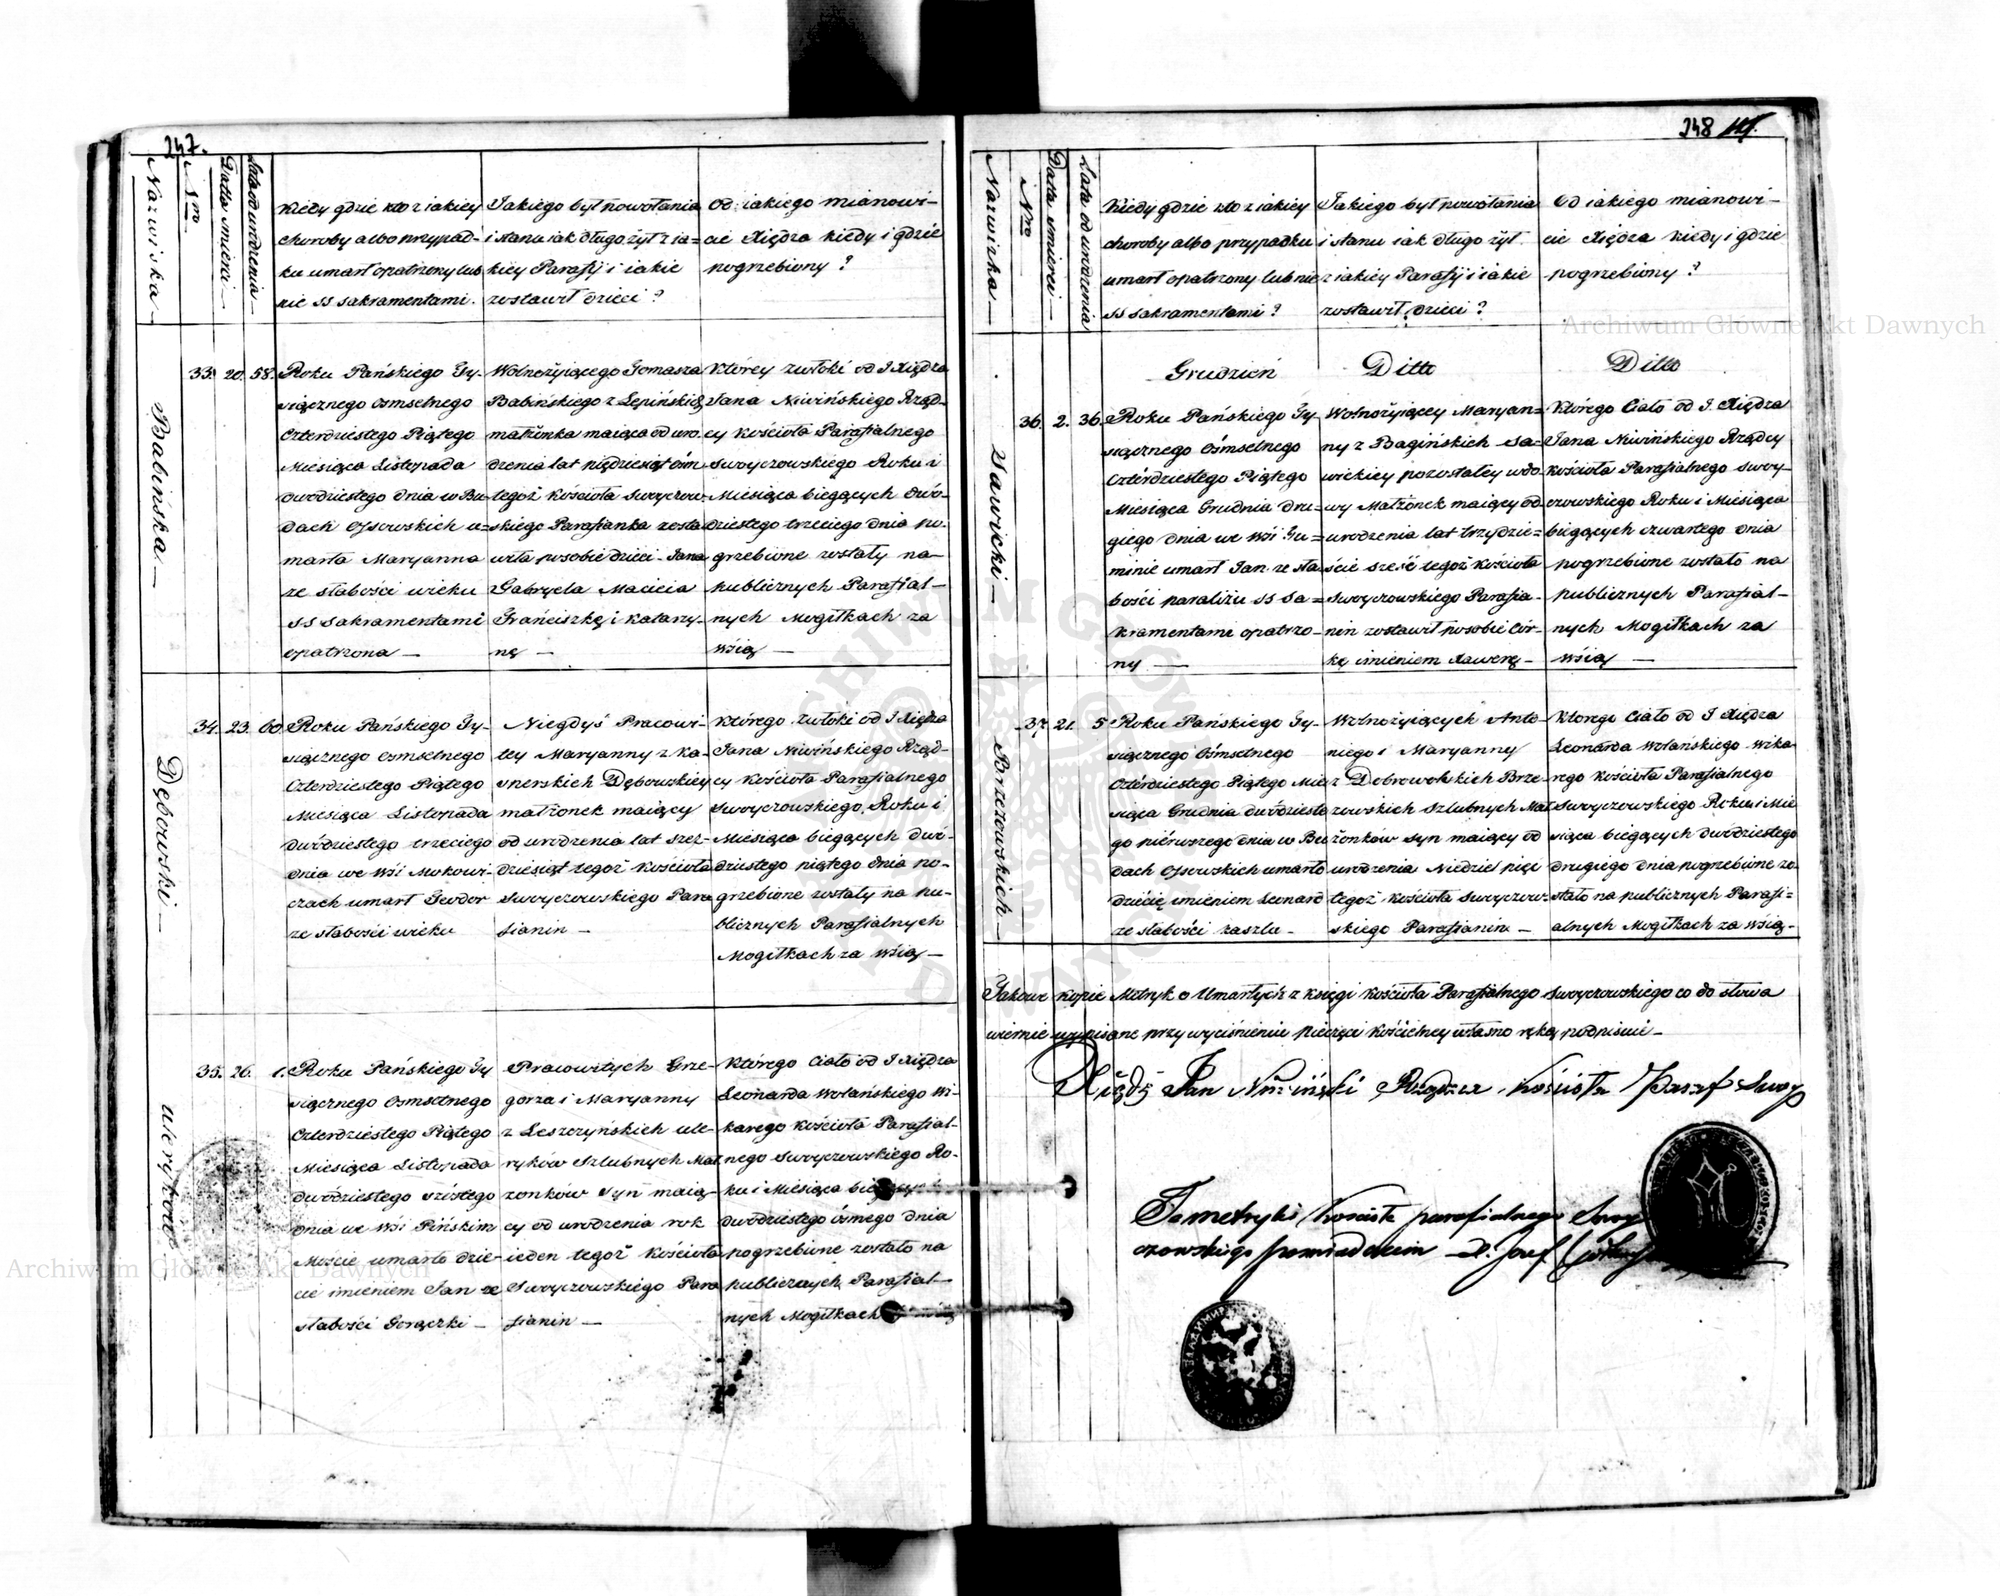 247.
Nazwiska
Nro
Datta śmierci
Lata od urodzenia
Kiedy gdzie kto z iakiey
choroby albo przypad-
ku umarł opatrzony lub
nie SS sakramentami.
Jakiego był powołania
i stanu iak długo żył z ia=
kiey Parafij i iakie
zostawił dzieci?
Od iakiego mianowi-
cie Xiędza kiedy i gdzie
pogrzebiony?
Babińska
33. 20. 58.
Roku Pańskiego Ty-
siącznego Osmsetnego
Czterdziestego Piątego
Miesiąca Listopada
dwódziestego dnia w Bu
dach Ossowskich u=
marła Maryanna
ze słabości wieku
SS Sakramentami
opatrzona —
Wolnożyiącego Tomasza
Babińskiego z Łepińskich
małżonka maiąca od uro
dzenia lat pięćdziesiąt ośm
tegoż kościoła Sworyczow-
skiego Parafianka zosta
wiła po sobie dzieci Jana
Gabryela Macieia
Franciszkę i Katarzy-
nę —
Którey zwłoki od J Xiędza
Jana Niwińskiego Rząd-
cy Kościoła Parafialnego
Sworyczowskiego Roku i
Miesiąca biegących dwó-
dziestego trzeciego dnia po-
grzebione zostały na
publicznych Parafial-
nych Mogiłkach za
wsią —
Dębowski
34. 23. 60.
Roku Pańskiego Ty-
siącznego Osmsetnego
Czterdziestego Piątego
Miesiąca Listopada
dwódziestego trzeciego
dnia we wsi Mokowi-
czach umarł Teodor
ze słabości wieku
Niegdyś Pracowi-
tey Maryanny z Ka-
snerskich Dębowskiey
małżonek maiący
od urodzenia lat sześ-
dziesiąt tegoż kościoła
Sworyczowskiego Para
fianin —
Którego zwłoki od J Xiędza
Jana Niwińskiego Rząd-
cy Kościoła Parafialnego
Sworyczowskiego Roku i
Miesiąca biegących dwó-
dziestego piątego dnia po-
grzebione zostały na pu-
blicznych Parafialnych
Mogiłkach za wsią —
35. 26. 1.
Roku Pańskiego Ty
siącznego Osmsetnego
Czterdziestego Piątego
Miesiąca Listopada
dwódziestego szóstego
dnia we wsi Pińskim
Moście umarło dzie-
cie imieniem Jan ze
słabości Gorączki —
Pracowitych Grze-
gorza i Maryanny
z Leszczyńskich Ule-
ryków Szlubnych Mał
żonków syn maią-
cy od urodzenia rok
ieden tegoż kościoła
Sworyczowskiego Para
fianin —
Którego Ciało od J Xiędza
Leonarda Wolańskiego Wi-
karego Kościoła Parafial-
nego Sworyczowskiego Ro-
ku i Miesiąca
dwódziestego ósmego dnia
pogrzebione zostało na
publicznych Parafial-
nych Mogiłkach
248
Nazwiska
Nro
Datta śmierci
Lata od urodzenia
Kiedy gdzie kto z iakiey
choroby albo przypadku
umarł opatrzony lub nie
SS sakramentami?
Jakiego był powołania
i stanu iak długo żył
z iakiey Parafij i iakie
zostawił dzieci?
Od iakiego mianowi-
cie Xiędza kiedy i gdzie
pogrzebiony?
Grudzień Ditto Ditto
Sawicki
36. 2. 36.
Roku Pańskiego Ty-
siącznego Ośmsetnego
Czterdziestego Piątego
Miesiąca Grudnia dru=
giego dnia we wsi Gu=
minie umarł Jan ze sła
bości paraliżu SS Sa=
kramentami opatrzo-
ny —
Wolnożyiącey Maryan-
ny z Bagińskich Sa=
wickiey pozostałey wdo
wy Małżonek maiący od
urodzenia lat trzydzie=
ście sześć tegoż kościoła
Sworyczowskiego Parafia-
nin zostawił po sobie Cór-
kę imieniem Xawerę —
Którego Ciało od J. Xiędza
Jana Niwińskiego Rządcy
Kościoła Parafialnego Swory-
czowskiego Roku i Miesiąca
biegących czwartego dnia
pogrzebione zostało na
publicznych Parafial-
nych Mogiłkach za
wsią —
Brzezowskich
37. 21. 5
Roku Pańskiego Ty-
siącznego Ośmsetnego
Czterdziestego Piątego Mie
siąca Grudnia dwódzieste
go pierwszego dnia w Bu
dach Ossowskich umarło
dziécię imieniem Leonard
ze słabości kaszlu —
Wolnożyiących Anto-
niego i Maryanny
z Dobrowolskich Brze-
zowskich Szlubnych Mał
żonków syn maiący od
urodzenia Niedziel pięć
tegoż kościoła Sworyczow-
skiego Parafianin —
Którego Ciało od J Xiędza
Leonarda Wolańskiego Wika
rego Kościoła Parafialnego
Sworyczowskiego Roku i Mie
siąca biegących dwódziestego
drugiego dnia pogrzebione zo-
stało na publicznych Parafi=
alnych Mogiłkach za wsią —
Takowe kopie Metryk o Umarłych z księgi Kościoła Parafialnego Sworyczowskiego co do słowa
wiernie wypisane przy wyciśnieniu pieczęci kościelney własno ręką podpisuie —
Xiądz Jan Niwiński Rządzca Kościoła Paraf Swory
Te metryki kościoła parafialnego Swory
czowskiego poswiadczam X. Jozef
Archiwum Główne Akt Dawnych
Archiwum Główne Akt Dawnych